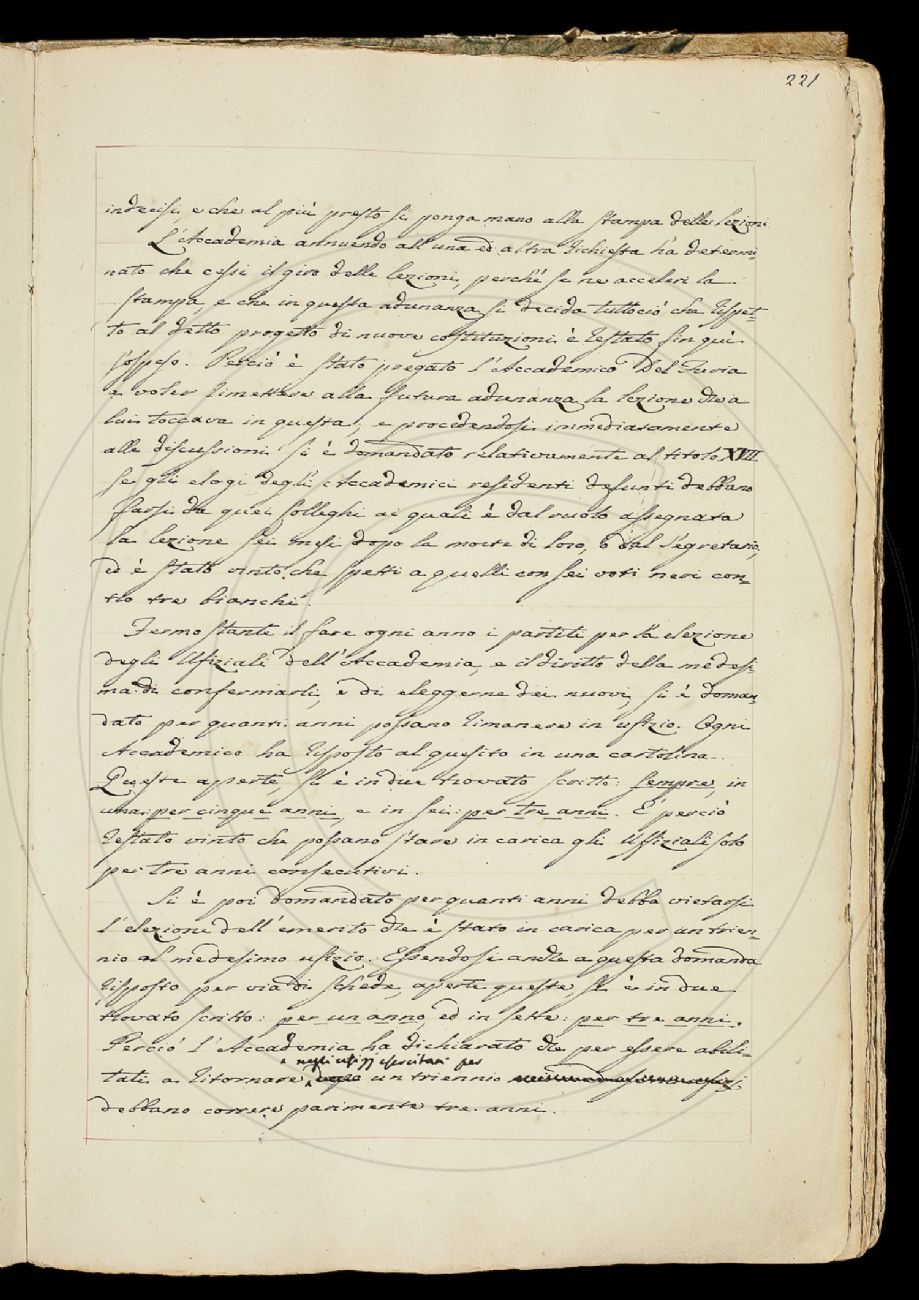 221
indecisi, e che al più presto si ponga mano alla stampa delle lezioni
L'Accademia annuendo all'una ed altra richiesta ha determi-
nato che cessi il giro delle lezioni, perchè se ne acceleri la
stampa, e che in questa adunanza si decida tuttociò che rispet-
to al detto progetto di nuove costituzioni è restato fin quì
sospeso. Perciò è stato pregato l'Accademico Del Furia
a voler rimettere alla futura adunanza la lezione che a
lui toccava in questa, e procedendosi immediatamente
alle discussioni si è domandato relativamente al titolo XVII
se gli elogi degli Accademici residenti defunti debbano
farsi da quei Colleghi ai quali è dal ruolo assegnata
la lezione sei mesi dopo la morte di loro, o dal Segretario,
ed è stato vinto che spetti a quelli con sei voti neri con-
tro tre bianchi.
Fermo stante il fare ogni anno i partiti per la elezione
degli Ufiziali dell'Accademia, e il diritto della medesi-
ma di confermarli, e di eleggerne dei nuovi, si è doman-
dato per quanti anni possano rimanere in ufizio. Ogni
Accademico ha risposto al quesito in una cartolina.
Queste aperte, si è in due trovato scritto: sempre, in
una: per cinque anni, e in sei: per tre anni. È perciò
restato vinto che possano stare in carica gli Uffiziali solo
per tre anni consecutivi.
Si è poi domandato per quanti anni debba vietarsi
l'elezione dell'emerito che è stato in carica per un trien-
nio al medesimo ufizio. Essendosi anche a questa domanda
risposto per via di schede, aperte queste, si è in due
trovato scritto: per un anno, ed in sette: per tre anni.
Perciò l'Accademia ha dichiarato che per essere abili-
negli ufizj esercitati per
tati a ritornare un triennio
debbano correre parimente tre anni.